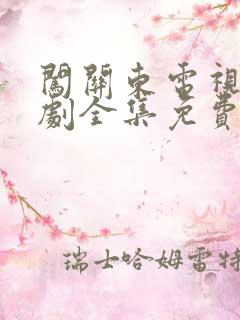 闖關東電視
劇全集免費
瑞士哈姆雷特